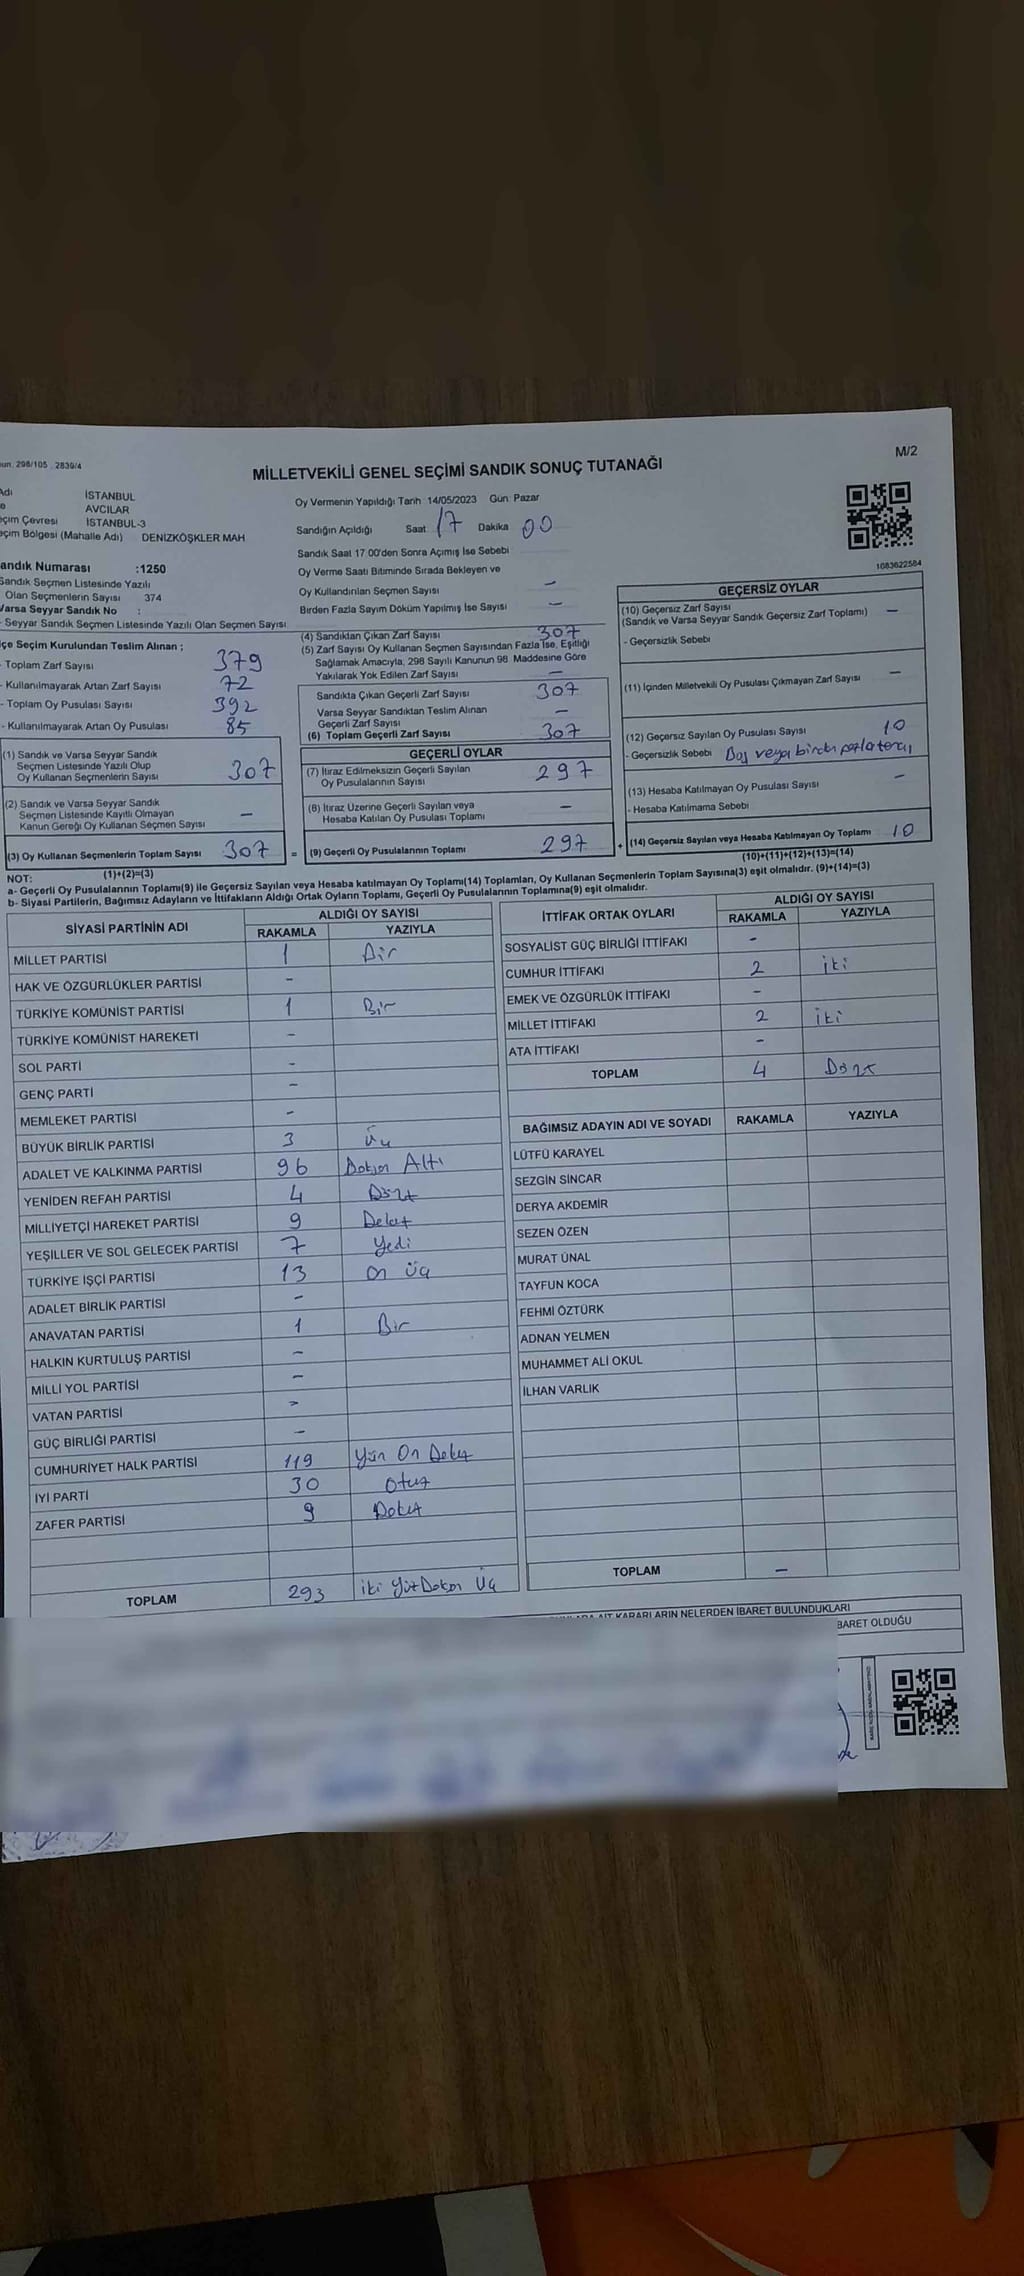 298/105 . 2839/4
M/2
MİLLETVEKİLİ GENEL SEÇİMİ SANDIK SONUÇ TUTANAĞI
İSTANBUL
AVCILAR
Çevresi İSTANBUL-3
Bölgesi (Mahalle Adı) DENİZKÖŞKLER MAH
Oy Vermenin Yapıldığı Tarih 14/05/2023 Gün: Pazar
Sandığın Açıldığı Saat 17 Dakika 00
Sandık Saat 17.00'den Sonra Açımış İse Sebebi
Oy Verme Saati Bitiminde Sırada Bekleyen ve
Oy Kullandırılan Seçmen Sayısı -
Birden Fazla Sayım Döküm Yapılmış İse Sayısı -
1083622584
andık Numarası :1250
Sandık Seçmen Listesinde Yazılı
Olan Seçmenlerin Sayısı 374
Varsa Seyyar Sandık No :
- Seyyar Sandık Seçmen Listesinde Yazılı Olan Seçmen Sayısı
çe Seçim Kurulundan Teslim Alınan ;
- Toplam Zarf Sayısı 379
- Kullanılmayarak Artan Zarf Sayısı 72
- Toplam Oy Pusulası Sayısı 392
- Kullanılmayarak Artan Oy Pusulası 85
(1) Sandık ve Varsa Seyyar Sandık
Seçmen Listesinde Yazılı Olup
Oy Kullanan Seçmenlerin Sayısı 307
(2) Sandık ve Varsa Seyyar Sandık
Seçmen Listesinde Kayıtlı Olmayan
Kanun Gereği Oy Kullanan Seçmen Sayısı -
(3) Oy Kullanan Seçmenlerin Toplam Sayısı 307 =
(1)+(2)=(3)
(4) Sandıktan Çıkan Zarf Sayısı 307
(5) Zarf Sayısı Oy Kullanan Seçmen Sayısından Fazla İse, Eşitliği
Sağlamak Amacıyla, 298 Sayılı Kanunun 98. Maddesine Göre
Yakılarak Yok Edilen Zarf Sayısı -
Sandıkta Çıkan Geçerli Zarf Sayısı 307
Varsa Seyyar Sandıktan Teslim Alınan
Geçerli Zarf Sayısı -
(6) Toplam Geçerli Zarf Sayısı 307
GEÇERLİ OYLAR
(7) İtiraz Edilmeksizin Geçerli Sayılan
Oy Pusulalarının Sayısı 297
(8) İtiraz Üzerine Geçerli Sayılan veya
Hesaba Katılan Oy Pusulası Toplamı -
(9) Geçerli Oy Pusulalarının Toplamı 297 +
GEÇERSİZ OYLAR
(10) Geçersiz Zarf Sayısı
(Sandık ve Varsa Seyyar Sandık Geçersiz Zarf Toplamı) -
- Geçersizlik Sebebi
(11) İçinden Milletvekili Oy Pusulası Çıkmayan Zarf Sayısı -
(12) Geçersiz Sayılan Oy Pusulası Sayısı 10
- Geçersizlik Sebebi Boş veya birden fazla tercih
(13) Hesaba Katılmayan Oy Pusulası Sayısı -
- Hesaba Katılmama Sebebi
(14) Geçersiz Sayılan veya Hesaba Katılmayan Oy Toplamı 10
(10)+(11)+(12)+(13)=(14)
NOT:
a- Geçerli Oy Pusulalarının Toplamı(9) ile Geçersiz Sayılan veya Hesaba katılmayan Oy Toplamı(14) Toplamları, Oy Kullanan Seçmenlerin Toplam Sayısına(3) eşit olmalıdır. (9)+(14)=(3)
b- Siyasi Partilerin, Bağımsız Adayların ve İttifakların Aldığı Ortak Oyların Toplamı, Geçerli Oy Pusulalarının Toplamına(9) eşit olmalıdır.
SİYASİ PARTİNİN ADI ALDIĞI OY SAYISI
RAKAMLA YAZIYLA
MİLLET PARTİSİ 1 Bir
HAK VE ÖZGÜRLÜKLER PARTİSİ -
TÜRKİYE KOMÜNİST PARTİSİ 1 Bir
TÜRKİYE KOMÜNİST HAREKETİ -
SOL PARTİ -
GENÇ PARTİ -
MEMLEKET PARTİSİ -
BÜYÜK BİRLİK PARTİSİ 3 Üç
ADALET VE KALKINMA PARTİSİ 96 Doksan Altı
YENİDEN REFAH PARTİSİ 4 Dört
MİLLİYETÇİ HAREKET PARTİSİ 9 Dokuz
YEŞİLLER VE SOL GELECEK PARTİSİ 7 Yedi
TÜRKİYE İŞÇİ PARTİSİ 13 On Üç
ADALET BİRLİK PARTİSİ -
ANAVATAN PARTİSİ 1 Bir
HALKIN KURTULUŞ PARTİSİ -
MİLLİ YOL PARTİSİ -
VATAN PARTİSİ -
GÜÇ BİRLİĞİ PARTİSİ -
CUMHURİYET HALK PARTİSİ 119 Yüz On Dokuz
İYİ PARTİ 30 Otuz
ZAFER PARTİSİ 9 Dokuz
TOPLAM 293 İki Yüz Doksan Üç
İTTİFAK ORTAK OYLARI ALDIĞI OY SAYISI
RAKAMLA YAZIYLA
SOSYALİST GÜÇ BİRLİĞİ İTTİFAKI -
CUMHUR İTTİFAKI 2 İki
EMEK VE ÖZGÜRLÜK İTTİFAKI -
MİLLET İTTİFAKI 2 İki
ATA İTTİFAKI -
TOPLAM 4 Dört
BAĞIMSIZ ADAYIN ADI VE SOYADI RAKAMLA YAZIYLA
LÜTFÜ KARAYEL
SEZGİN SİNCAR
DERYA AKDEMİR
SEZEN ÖZEN
MURAT ÜNAL
TAYFUN KOCA
FEHMİ ÖZTÜRK
ADNAN YELMEN
MUHAMMET ALİ OKUL
İLHAN VARLIK
TOPLAM -
AİT KARARLARIN NELERDEN İBARET BULUNDUKLARI
BARET OLDUĞU